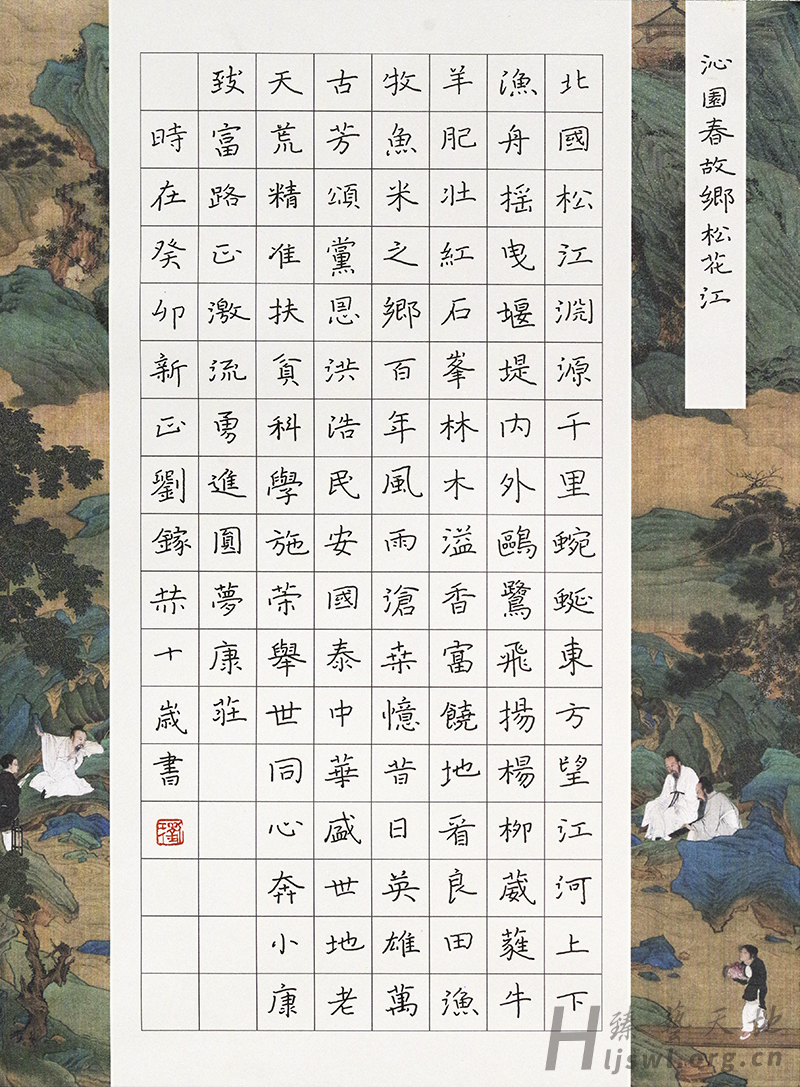 沁園春故鄉松花江
北國松江淵源千里蜿蜒東方望江河上下
漁舟搖曳堰堤內外鷗鷺飛揚楊柳葳蕤牛
羊肥壯紅石峯林木溢香富饒地看良田漁
牧魚米之鄉百年風雨滄桑憶昔日英雄萬
古芳頌黨恩洪浩民安國泰中華盛世地老
天荒精准扶貧科學施荣舉世同心奔小康
致富路正激流勇進圓夢康莊
時在癸卯新正劉鎵赫十歲書
臻藝天地
Hljswl.org.cn